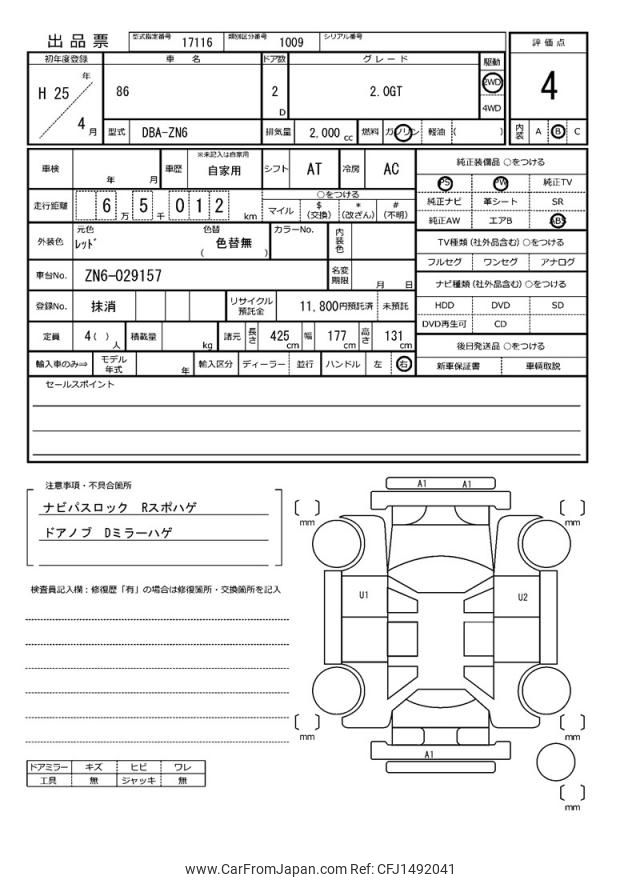 出品票 型式指定番号 17116 類別区分番号 1009 シリアル番号
評価点
初年度登録 車名 ドア数 グレード 駆動
H 25 年 86 2 D 2.0GT 2WD 4
4月 4WD
型式 DBA-ZN6 排気量 2,000 cc 燃料 ガソリン 軽油 ( ) 内装 A B C
車検 年 月 車歴 ※未記入は自家用 自家用 シフト AT 冷房 AC
純正装備品 ○をつける
PS PW 純正TV
走行距離 6 万 5 千 0 1 2 km ○をつける
マイル $(交換) *(改ざん) #(不明)
純正ナビ 革シート SR
純正AW エアB ABS
外装色 元色 レッド 色替 ( 色替無 ) カラーNo. 内装色
TV種類(社外品含む)○をつける
フルセグ ワンセグ アナログ
車台No. ZN6-029157 名変期限 月 日
ナビ種類(社外品含む)○をつける
登録No. 抹消 リサイクル預託金 11,800円預託済 未預託
HDD DVD SD
DVD再生可 CD
定員 4( )人 積載量 kg 諸元 長さ 425 cm 幅 177 cm 高さ 131 cm
後日発送品 ○をつける
輸入車のみ⇒ モデル年式 年 輸入区分 ディーラー 並行 ハンドル 左 右
新車保証書 車輌取説
セールスポイント
注意事項・不具合箇所
ナビパスロック Rスポハゲ
ドアノブ Dミラーハゲ
検査員記入欄:修復歴「有」の場合は修復箇所・交換箇所を記入
A1 A1
mm mm
U1 U2
mm mm
A1
mm
ドアミラー キズ ヒビ ワレ
工具 無 ジャッキ 無
www.CarFromJapan.com Ref: CFJ1492041